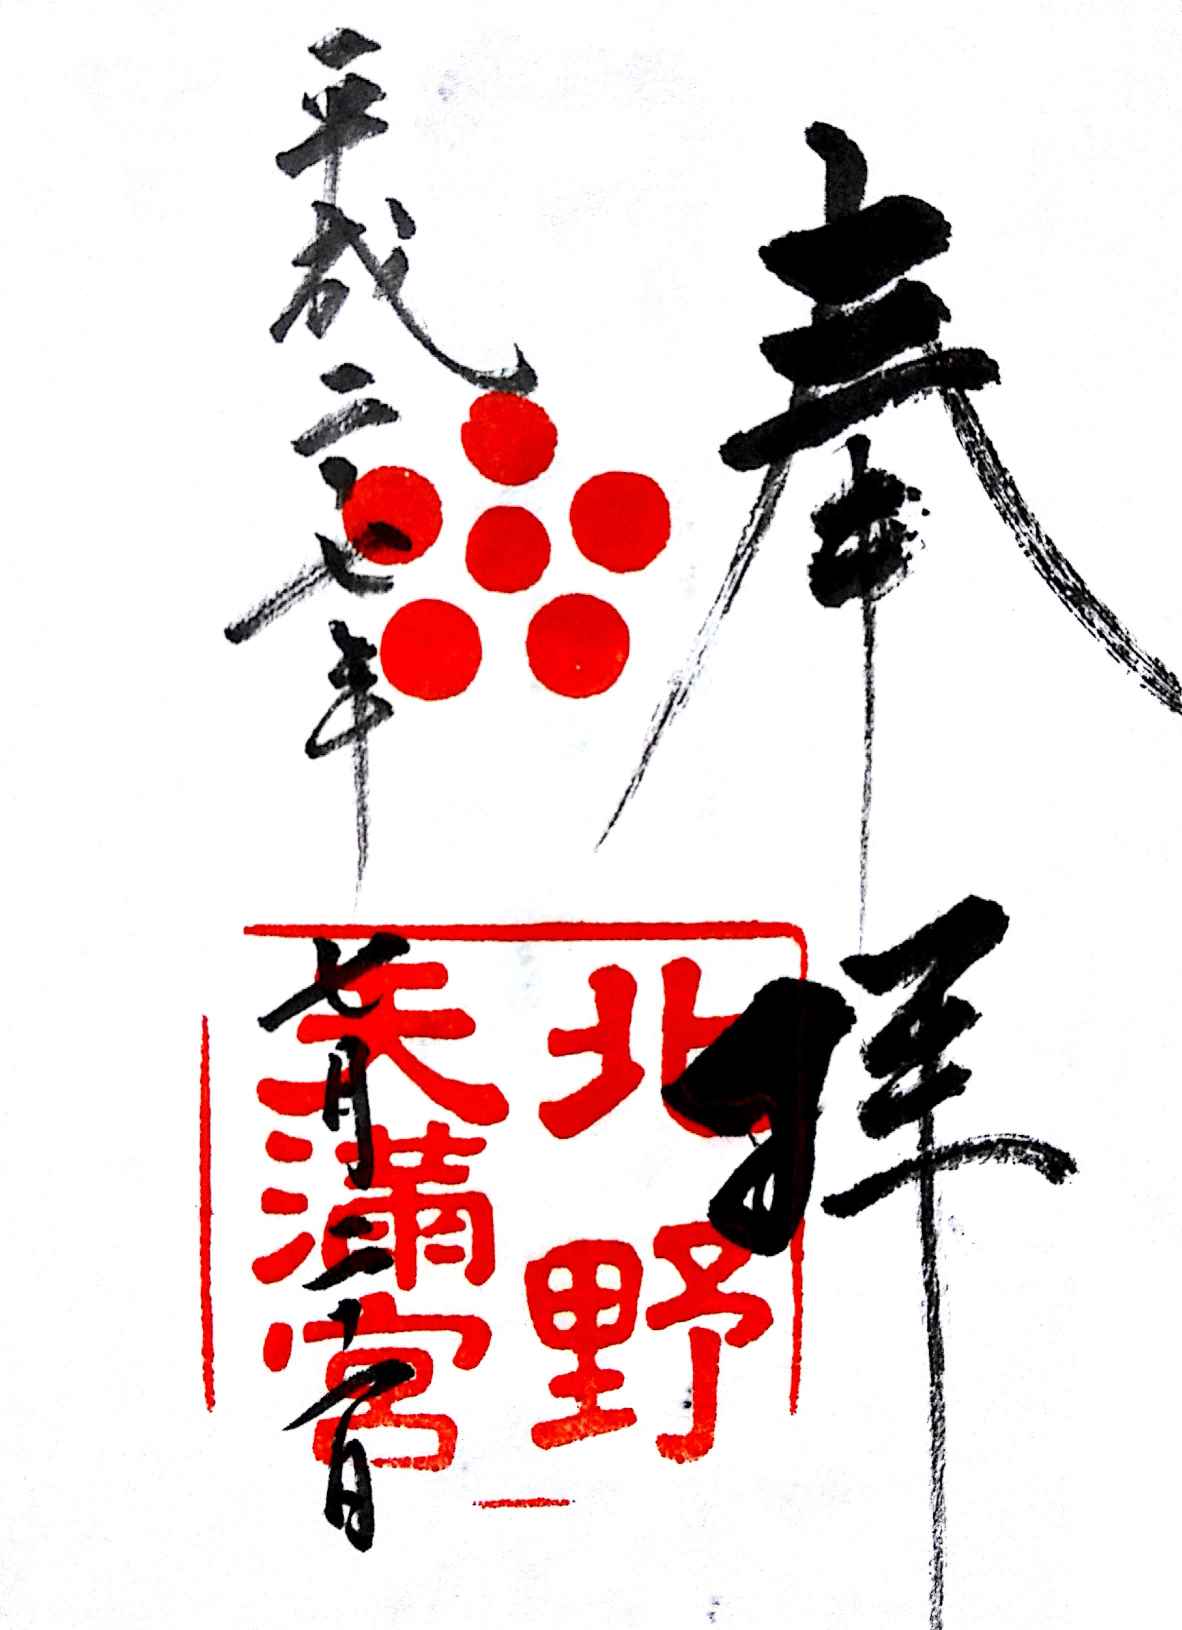 奉拝
北野
天滿宮
平成二十七年七月二十日